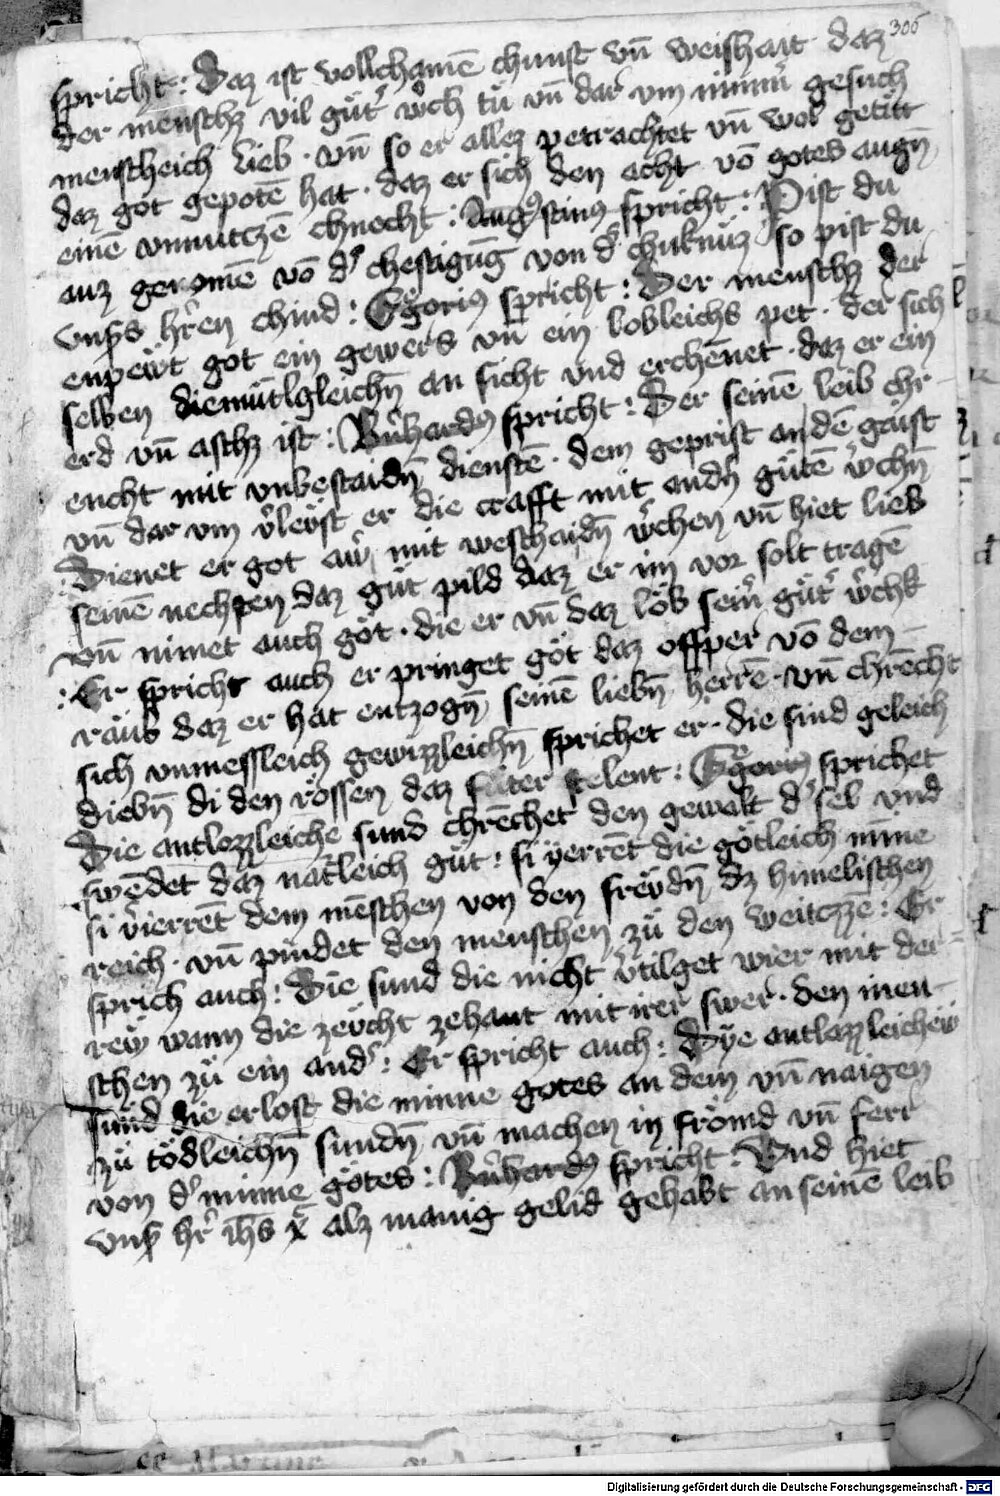 306
spricht : Daz ist vollchamē chunst vn̄ weishait daz
der menschz vil gůt' w'ch tů vn̄ dar vm nimm' gesuch
menscheich lieb · vn̄ so er allez petrachtet vn̄ wol getůt
daz got gepotē hat · daz er sich den acht vō gotes augn̄
einē vnnutczē chnecht : Aug9stin9 spricht : Pist du
auz genomē vō d' chestigūg von d' chuknüz so pist du
vnß hr̄en chind : G'gori9 spricht : Der menschz der
enpewt got ein gewers vn̄ ein lobleichs pet · der sich
selben diemütlgleichn̄ an sicht und erchēnet · daz er ein
erd vn̄ aschz ist : B'nhard9 spricht : Der seinē leib chr
encht mit vnbeschaidn̄ dienstē · dem geprist an dē gaist
vn̄ dar vm v'levst er die crafft mit andn̄ gůtē w'chn̄
Dienet er got aw' mit weschaidn̄ w'chen vn̄ hiet lieb
seinē nechsten daz gůt pild daz er im vor solt tragē
vn̄ nimet auch göt · die er vn̄ daz löb sein' gůt' w'chk
: Er spricht auch er pringet göt daz offper vō dem
raüb daz er hat entzogn̄ seinē liebn̄ herrē · vn̄ chrēcht
sich vnmessleich gewizzleichn̄ sprichet er · die sind geleich
diebn̄ di den rössen daz futer stelent : G'gori9 sprichet
Die antlozzleiche sund chrēchet den gewalt d' sel vnd
swēdet daz nātleich gůt : si yerrēt die götleich mīne
si v'ierrēt dem mēschen von den frevdn̄ dz himelischen
reich · vn̄ pindet den menschen zů den weitczze : Er
sprich auch : Die sund die nicht v'tilget wirt mit der
rew wann die zeücht zehant mit irer swer · den men
schen zů ein and' : Er spricht auch : Dye antlazzleichew
sund die erlost die minne gotes an dem vn̄ naigen
zů tödleichn̄ sundn̄ vn̄ machen in frömd vn̄ ferr
von d' minne götes : B'nhard9 spricht : Vnd hiet
vnß hr̄ ihs xp̄ alz manig gelid gehabt an seinē leib
Digitalisierung gefördert durch die Deutsche Forschungsgemeinschaft - DFG